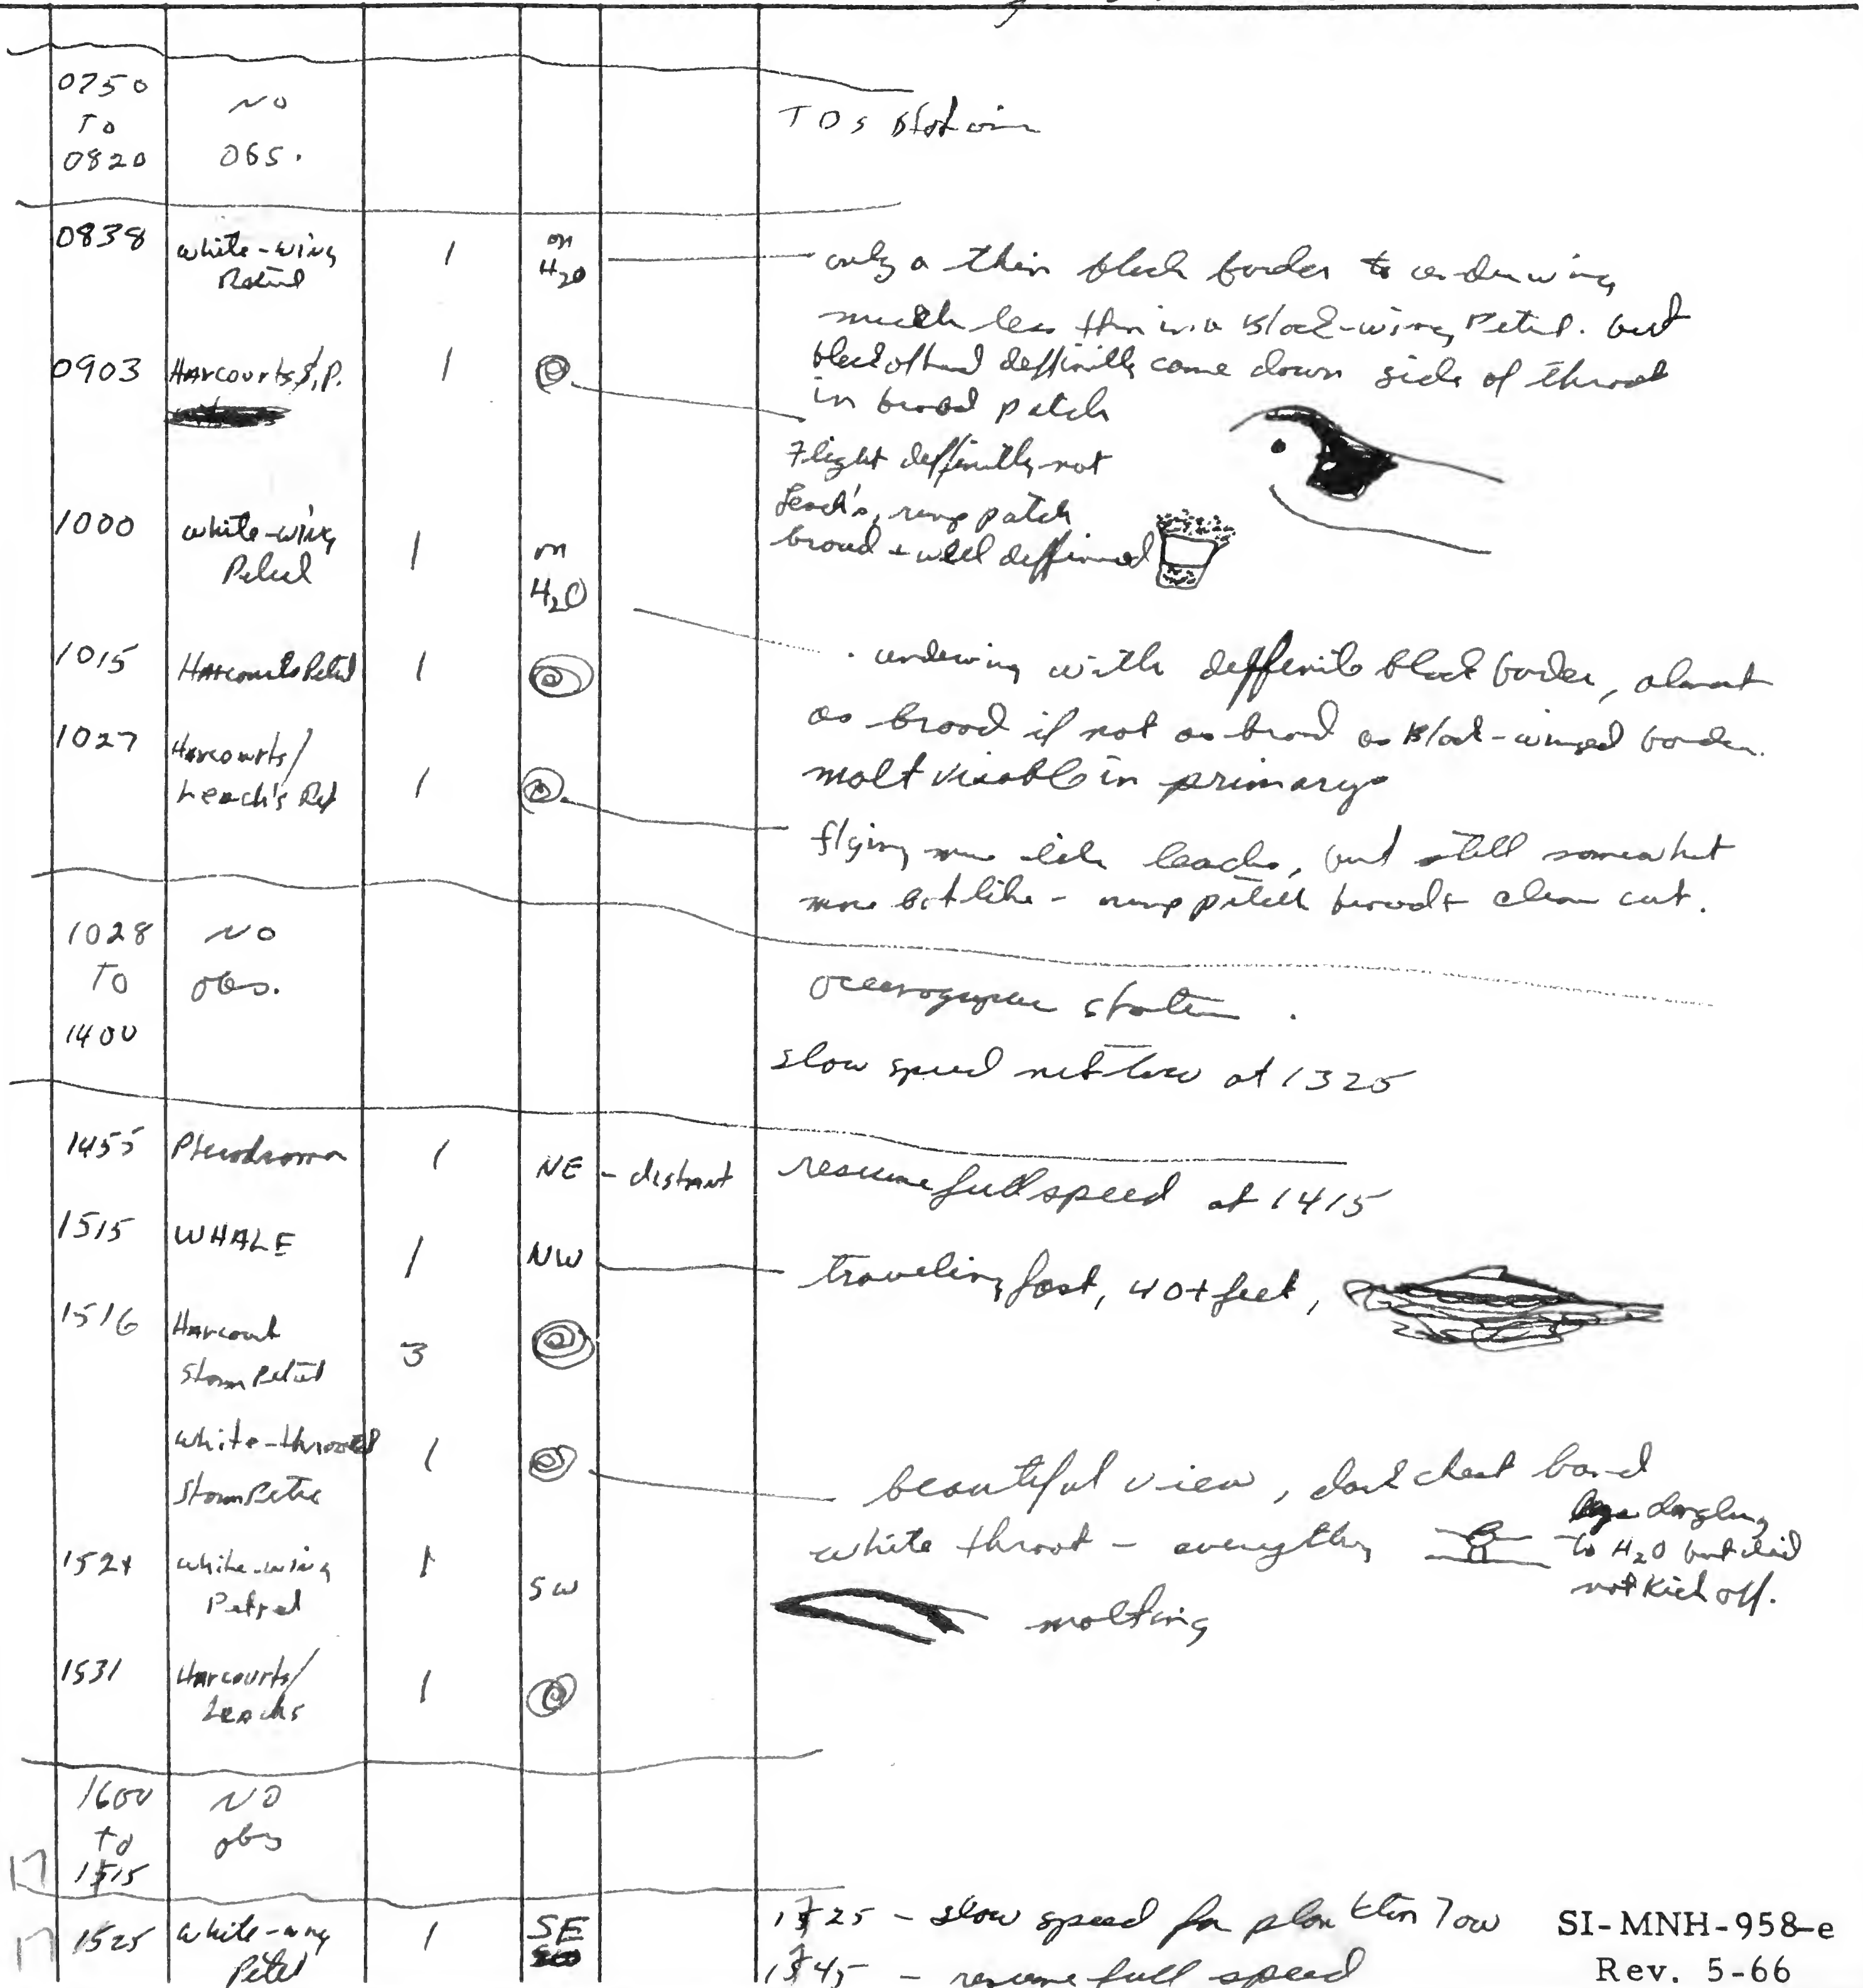 0750
TO
0820
NO
OBS.
TDS Station
0838
white-wing
Petrel
1
on
H2O
only a thin black border to underwing
much less than in a Black-wing Petrel. but
black of head deffinitly come down side of throat
in broad patch
0903
Harcourts S.P.
1
Flight deffinitly not
Leach's, rump patch
broad + well deffinned
1000
white-wing
Petrel
1
on
H2O
underwing with deffinite black border, almost
as broad if not as broad as Black-winged border.
molt visable in primarys
1015
Harcourts Petrel
1
1027
Harcourts/
Leach's Pet
1
flying more like leachs, but still somewhat
more bat like - rump patch broad + clean cut.
1028
TO
1400
NO
obs.
oceanographic station.
slow speed net tow at 1325
1455
Pterodroma
1
NE - distant
resume full speed at 1415
1515
WHALE
1
NW
traveling fast, 40+ feet,
1516
Harcourt
Storm Petrel
3
white-throated
Storm Petrel
1
beautiful view, dark chest band
white throat - everything
legs dangling
to H2O but did
not Kick off.
1524
white-wing
Petrel
1
SW
molting
1531
Harcourts/
Leachs
1
1600
to
1715
17
NO
obs
17
1525
white-wing
Petrel
1
SE
1725 - slow speed for plankton Tow
1745 - resume full speed
SI-MNH-958-e
Rev. 5-66